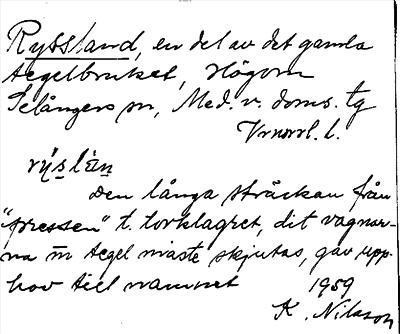 Ryssland, en del av det gamla
tegelbruket, Högom
Selångers sn, Med. v. doms. tg
Vrnorrl. l.
rýslàn
Den långa sträckan från
"pressen" t. torklagret, dit vagnar-
na m̅ tegel måste skjutas, gav upp-
hov till namnet 1959
K. Nilsson